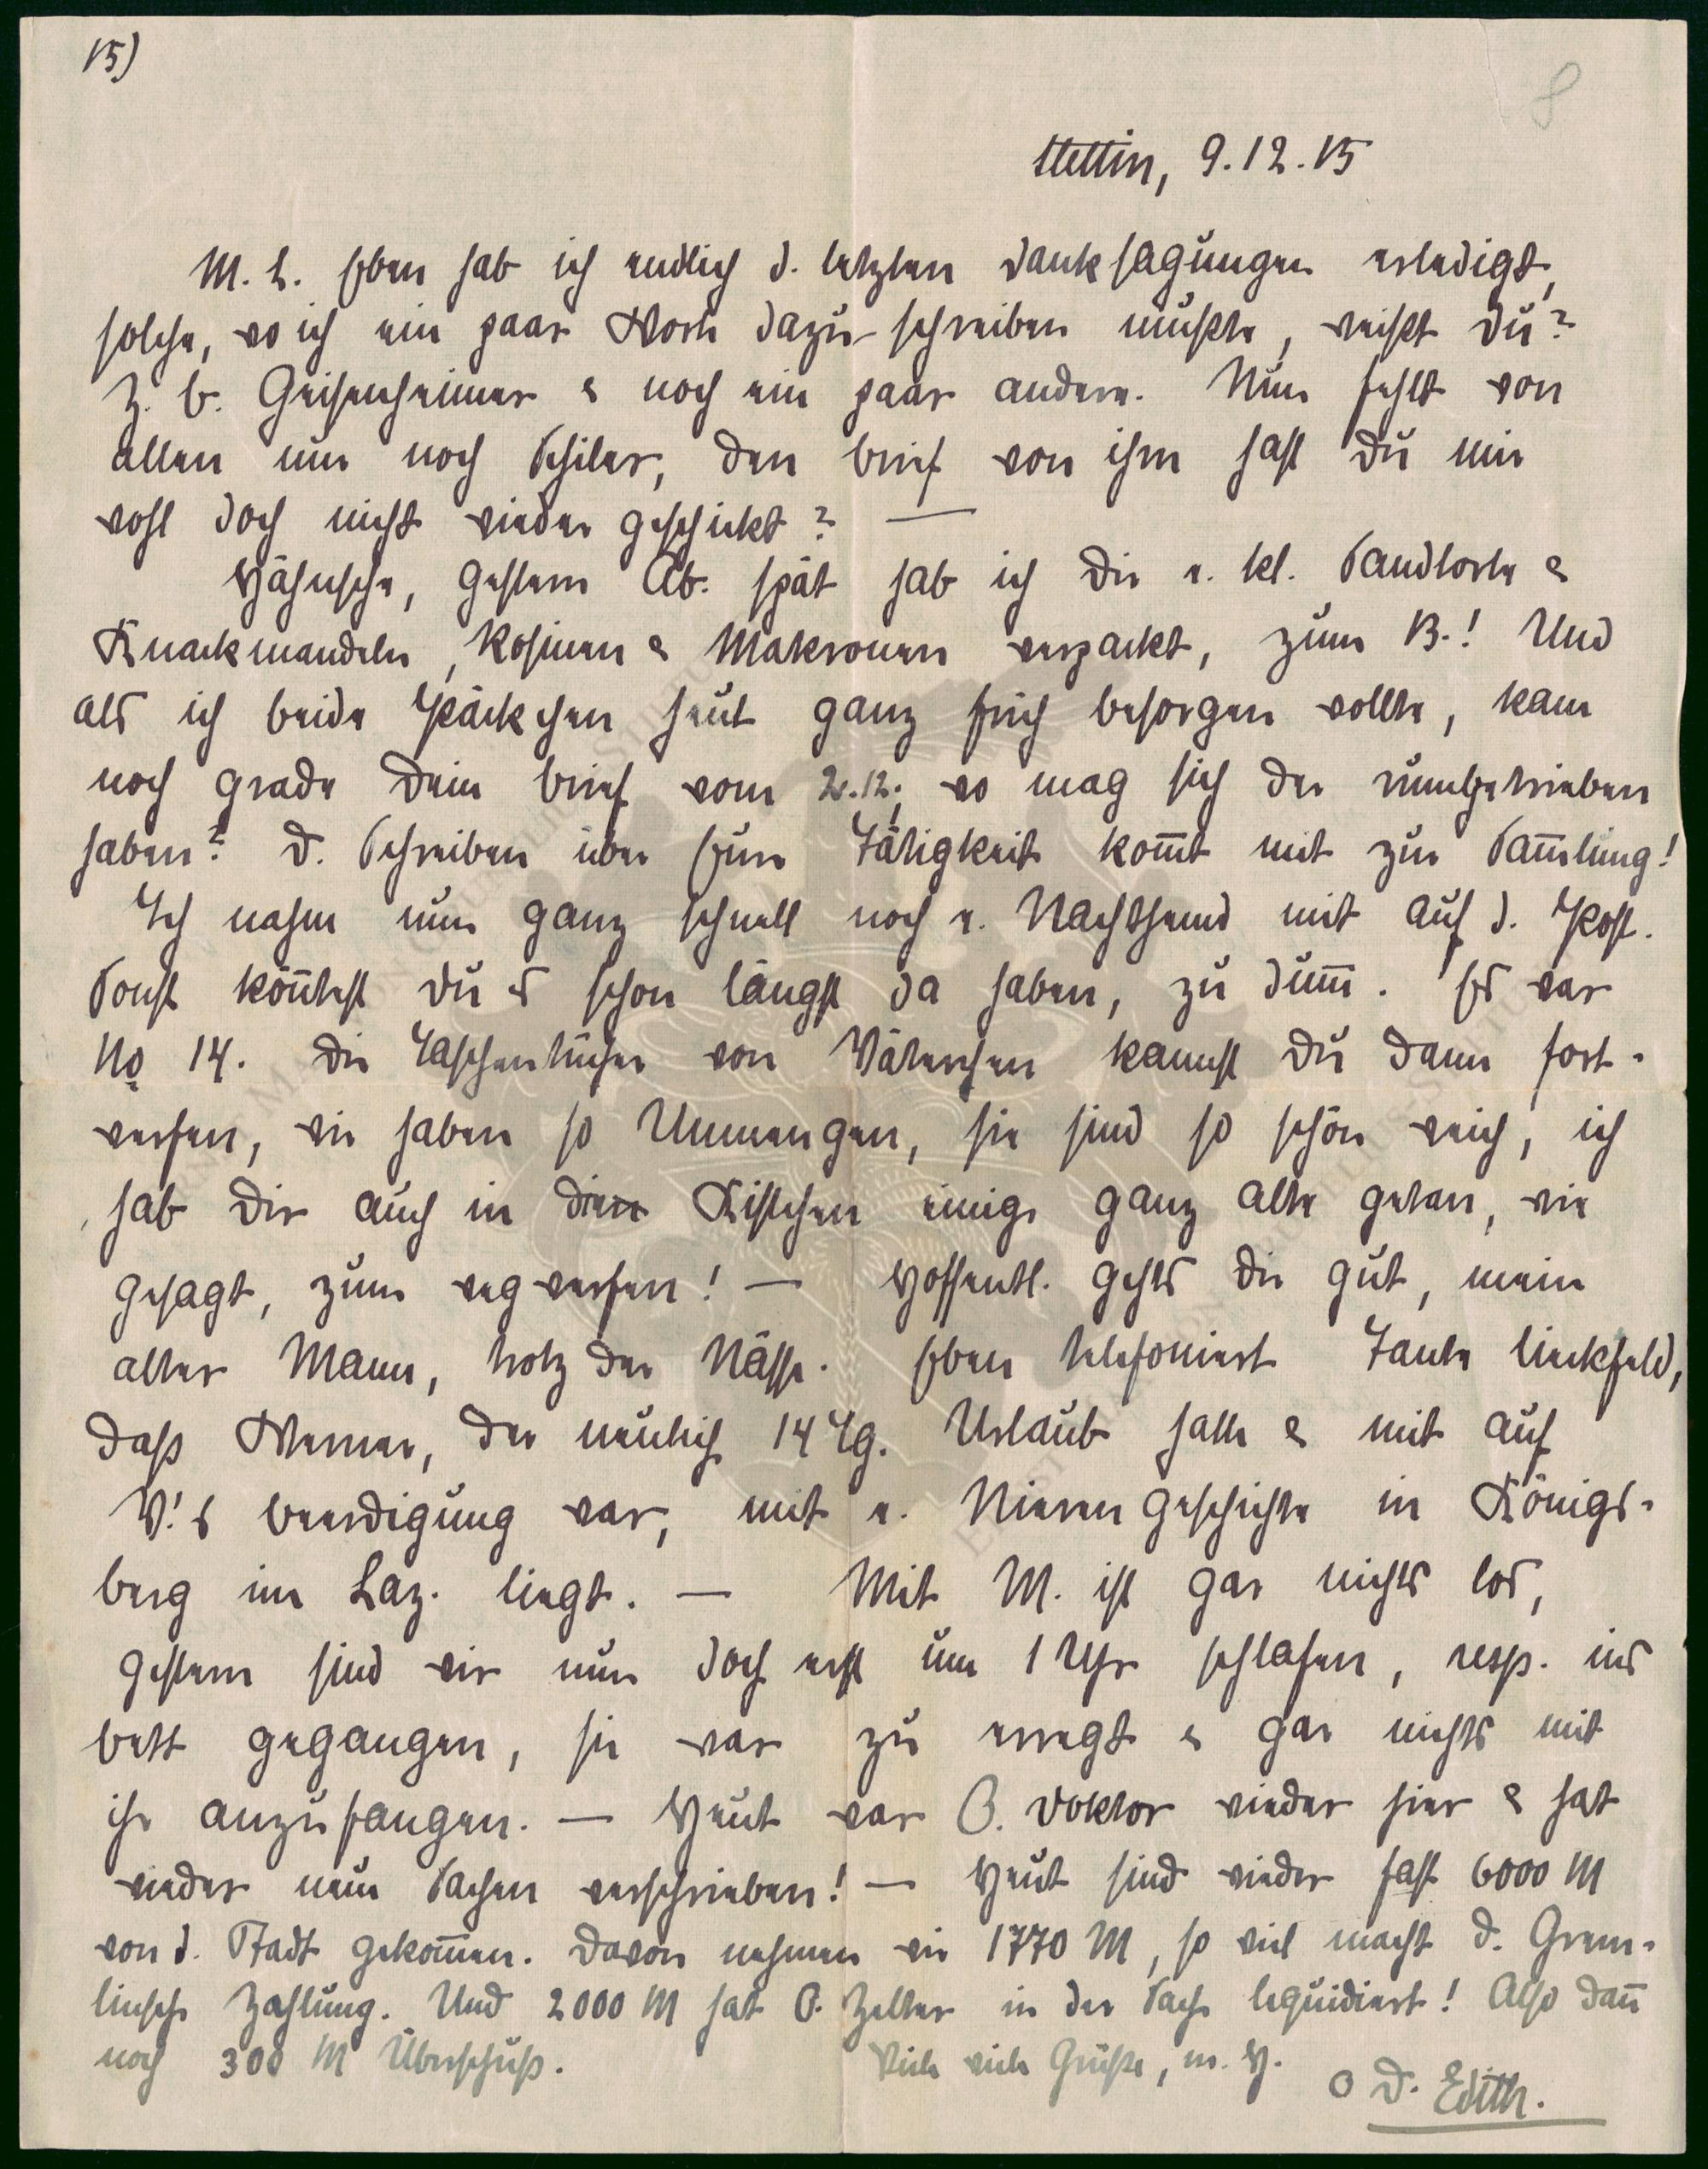 15)
8
Stettin, 9.12.15
M. L. Eben hab ich endlich d. letzten Danksagungen erledigt,
solche, wo ich ein paar Worte dazu schreiben mußte, weißt Du?
Z. B. Geisenheimer & noch ein paar andere. Nun fehlt von
allen nur noch Schiler, den Brief von ihm hast Du mir
wohl doch nicht wieder geschickt? —
Hähnsche, gestern Ab. spät hab ich Dir e. kl. Sandtorte &
Knackmandeln, Rosinen & Makronen verpackt, zum 13.! Und
als ich beide Päckchen heut ganz früh besorgen wollte, kam
noch grade Dein Brief vom 2.12., wo mag sich der rumgetrieben
haben? D. Schreiben über Eure Tätigkeit kom̄t mit zur Sam̄lung!
Ich nahm nun ganz schnell noch e. Nachthemd mit auf d. Post.
Sonst kön̄test Du es schon längst da haben, zu dum̄. Es war
No 14. Die Taschentücher von Väterchen kannst Du dann fort-
werfen, wir haben so Unmengen, sie sind so schön weich, ich
hab Dir auch in dem Kistchen einige ganz alte getan, wie
gesagt, zum wegwerfen! — Hoffentl. gehts Dir gut, mein
alter Mann, trotz der Nässe. Eben telefoniert Tante Lieckfeld,
daß Werner, der neulich 14 Tg. Urlaub hatte & mit auf
V.'s Beerdigung war, mit e. Nierengeschichte in Königs-
berg im Laz. liegt. — Mit M. ist gar nichts los,
gestern sind wir nun doch erst um 1 Uhr schlafen, resp. ins
Bett gegangen, sie war zu erregt & gar nichts mit
ihr anzufangen. — Heut war O. Doktor wieder hier & hat
wieder neue Sachen verschrieben! — Heut sind wieder fast 6000 M
von d. Stadt gekom̄en. Davon nehmen wir 1770 M, so viel macht d. Grem-
linsche Zahlung. Und 2000 M hat O. Zelter in der Sache liquidiert! Also dan̄
noch 300 M Überschuß. Viele viele Grüße, m. H.
O D. Edith.